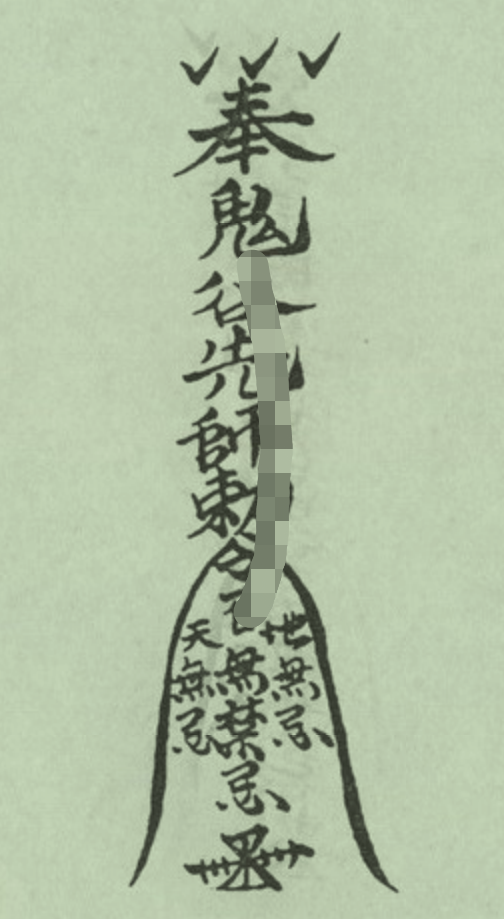 奉鬼谷先師令
天無忌
無禁忌
地無忌